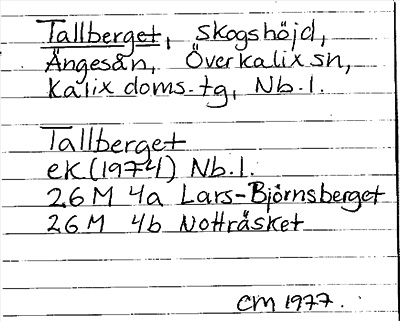 Tallberget, skogshöjd,
Ängesån, Överkalix sn,
Kalix doms.tg, Nb.l.
Tallberget
ek (1974) Nb.l.
26 M 4a Lars-Björnsberget
26 M 4b Nottråsket
CM 1977.